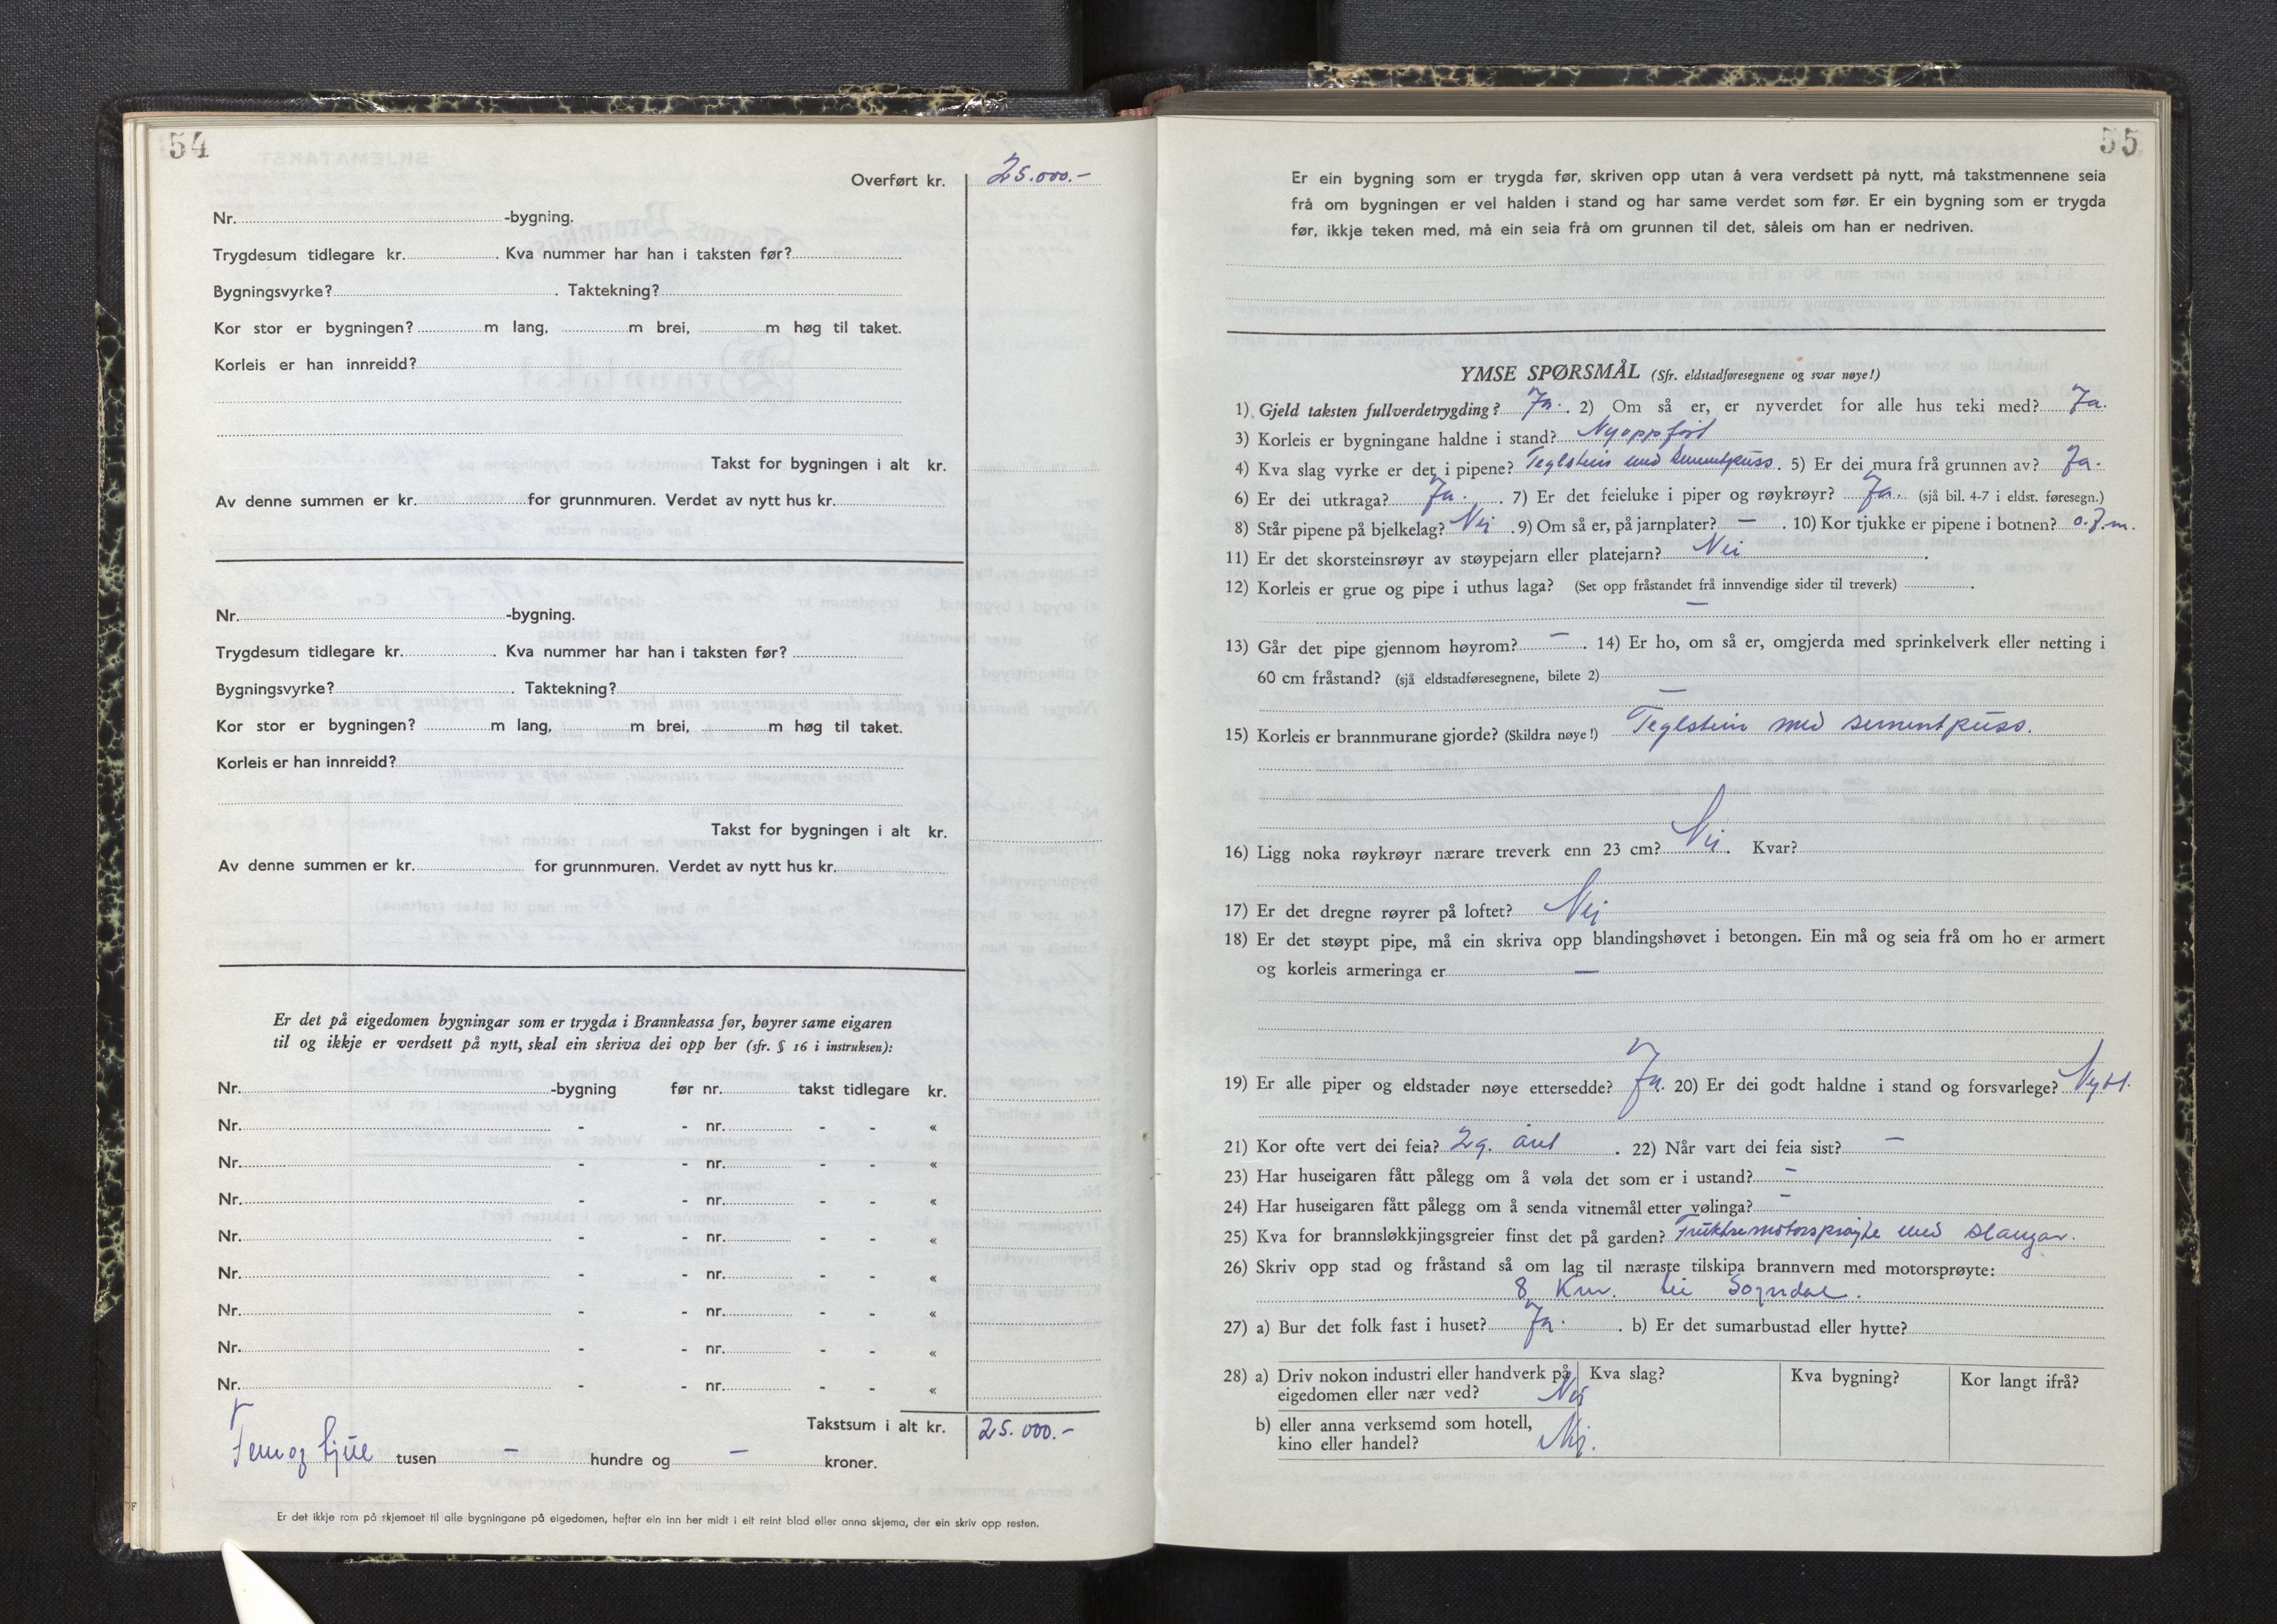 54
Overført kr. 25.000.-
Nr. -bygning.
Trygdesum tidlegare kr. . Kva nummer har han i taksten før?
Bygningsvyrke? . Taktekning?
Kor stor er bygningen? m lang, m brei, m høg til taket.
Korleis er han innreidd?
Takst for bygningen i alt kr.
Av denne summen er kr. for grunnmuren. Verdet av nytt hus kr.
Nr. -bygning.
Trygdesum tidlegare kr. . Kva nummer har han i taksten før?
Bygningsvyrke? . Taktekning?
Kor stor er bygningen? m lang, m brei, m høg til taket.
Korleis er han innreidd?
Takst for bygningen i alt kr.
Av denne summen er kr. for grunnmuren. Verdet av nytt hus kr.
Er det på eigedomen bygningar som er trygda i Brannkassa før, høyrer same eigaren
til og ikkje er verdsett på nytt, skal ein skriva dei opp her (sfr. § 16 i instruksen):
Nr. -bygning før nr. takst tidlegare kr.
Nr. - - nr. - - «
Nr. - - nr. - - «
Nr. - - nr. - - «
Nr. - - nr. - - «
Nr. - - nr. - - «
Nr. - - nr. - - «
Nr. - - nr. - - «
Nr. - - nr. - - «
Takstsum i alt kr. 25.000.-
Fem og tjue tusen — hundre og — kroner.
Er det ikkje rom på skjemaet til alle bygningane på eigedomen, hefter ein inn her midt i eit reint blad eller anna skjema, der ein skriv opp resten.
55
Er ein bygning som er trygda før, skriven opp utan å vera verdsett på nytt, må takstmennene seia
frå om bygningen er vel halden i stand og har same verdet som før. Er ein bygning som er trygda
før, ikkje teken med, må ein seia frå om grunnen til det, såleis om han er nedriven.
YMSE SPØRSMÅL (Sfr. eldstadføresegnene og svar nøye!)
1) Gjeld taksten fullverdetrygding? Ja. . 2) Om så er, er nyverdet for alle hus teki med? Ja.
3) Korleis er bygningane haldne i stand? Nyoppført
4) Kva slag vyrke er det i pipene? Teglstein med sementpuss. 5) Er dei mura frå grunnen av? Ja.
6) Er dei utkraga? Ja. . 7) Er det feieluke i piper og røykrøyr? Ja. (sjå bil. 4-7 i eldst. føresegn.)
8) Står pipene på bjelkelag? Nei . 9) Om så er, på jarnplater? — . 10) Kor tjukke er pipene i botnen? 0.7 m.
11) Er det skorsteinsrøyr av støypejarn eller platejarn? Nei .
12) Korleis er grue og pipe i uthus laga? (Set opp fråstandet frå innvendige sider til treverk) .
—
13) Går det pipe gjennom høyrom? — . 14) Er ho, om så er, omgjerda med sprinkelverk eller netting i
60 cm fråstand? (sjå eldstadføresegnene, bilete 2) —
15) Korleis er brannmurane gjorde? (Skildra nøye!) Teglstein med sementpuss.
16) Ligg noka røykrøyr nærare treverk enn 23 cm? Nei. Kvar?
17) Er det dregne røyrer på loftet? Nei
18) Er det støypt pipe, må ein skriva opp blandingshøvet i betongen. Ein må og seia frå om ho er armert
og korleis armeringa er —
19) Er alle piper og eldstader nøye ettersedde? Ja. 20) Er dei godt haldne i stand og forsvarlege?
21) Kor ofte vert dei feia? 2 g. året . 22) Når vart dei feia sist? —
23) Har huseigaren fått pålegg om å vøla det som er i ustand? —
24) Har huseigaren fått pålegg om å senda vitnemål etter vølinga? —
25) Kva for brannsløkkjingsgreier finst det på garden? med slangar.
26) Skriv opp stad og fråstand så om lag til næraste tilskipa brannvern med motorsprøyte:
8 Km. til Sogndal.
27) a) Bur det folk fast i huset? Ja. . b) Er det sumarbustad eller hytte?
28) a) Driv nokon industri eller handverk på Kva slag? Kva bygning? Kor langt ifrå?
eigedomen eller nær ved? Nei
b) eller anna verksemd som hotell,
kino eller handel? Nei.